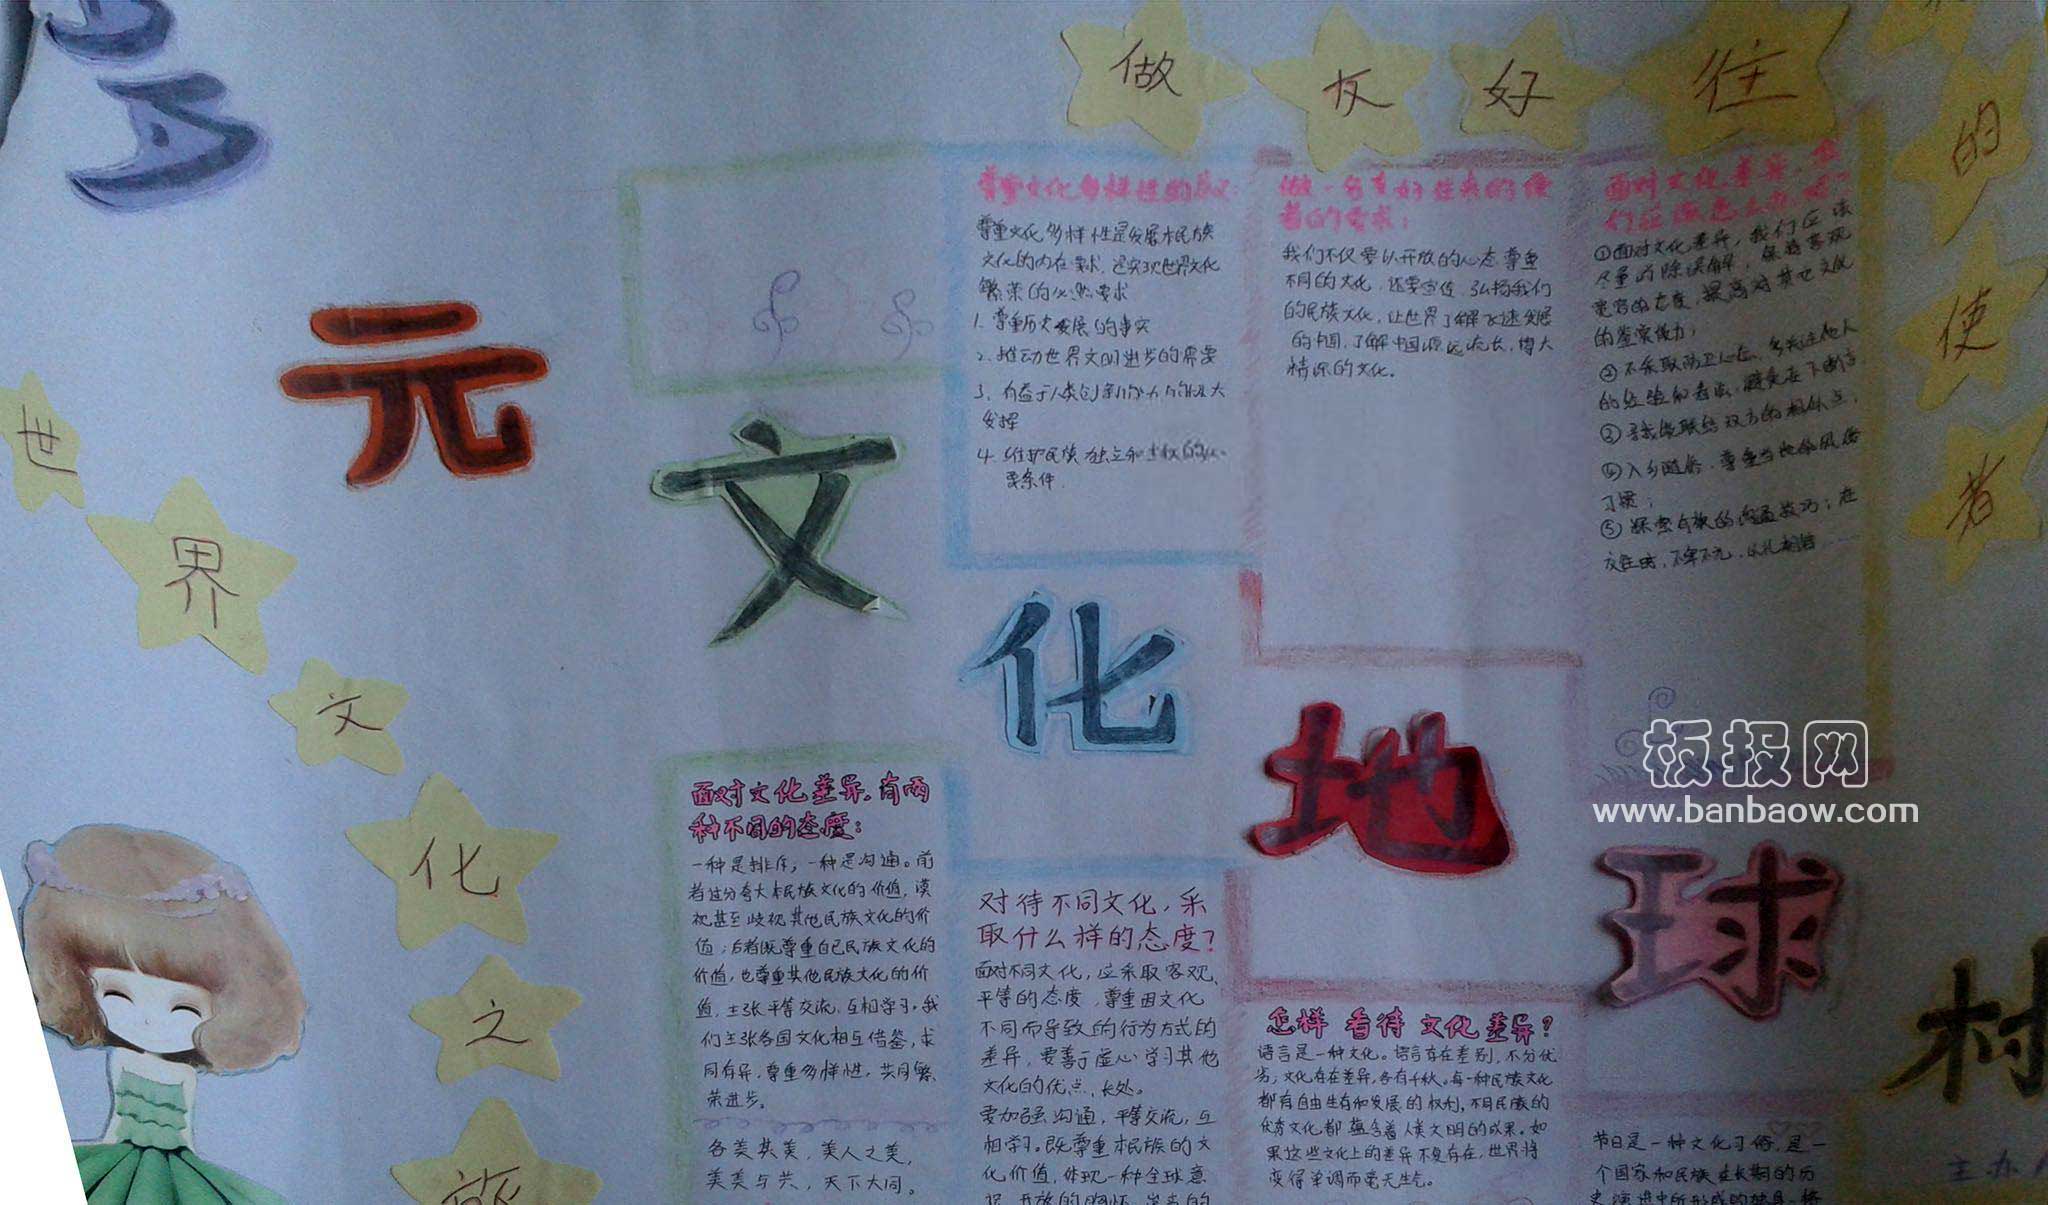 做友好往
的使者
世界文化之旅
元文化地球村
尊重文化多样性的意义:
尊重文化多样性是发展本民族
文化的内在要求,是实现世界文化
繁荣的必然要求
1. 尊重历史发展的事实
2. 推动世界文明进步的需要
3. 有益于人类创新能力的极大
发挥
4. 维护民族独立和主权的必
要条件.
做一名友好往来的使
者的要求:
我们不仅要以开放的心态尊重
不同的文化,还要宣传、弘扬我们
的民族文化,让世界了解飞速发展
的中国,了解中国源远流长,博大
精深的文化。
面对文化差异,
们应该怎么办呢
①面对文化差异,我们应
尽量消除误解,保持客观
宽容的态度,提高对其他文化
的鉴赏能力;
②不采取防卫心态,多关注他人
的经验和看法,避免在下断言
③寻找能联结双方的相似点;
④入乡随俗,尊重当地的风俗
习惯;
⑤探索有效的沟通技巧;在
交往时,不卑不亢,以礼相待
板报网
www.banbaow.com
面对文化差异,有两
种不同的态度:
一种是排斥,一种是沟通。前
者过分夸大本民族文化的价值,漠
视甚至歧视其他民族文化的价
值;后者既尊重自己民族文化的
价值,也尊重其他民族文化的价
值,主张平等交流,互相学习。我
们主张各国文化相互借鉴,求
同存异,尊重多样性,共同繁
荣进步。
各美其美,美人之美,
美美与共,天下大同。
对待不同文化,采
取什么样的态度?
面对不同文化,应采取客观、
平等的态度,尊重因文化
不同而导致的行为方式的
差异,要善于虚心学习其他
文化的优点、长处。
要加强沟通,平等交流,互
相学习。既尊重本民族的文
化价值,体现一种全球意
识、开放的胸怀、
怎样看待文化差异?
语言是一种文化。语言存在差别,不分优
劣;文化存在差异,各有千秋。每一种民族文化
都有自由生存和发展的权利,不同民族的
优秀文化都蕴含着人类文明的成果。如
果这些文化上的差异不复存在,世界将
变得单调而毫无生气。
节日是一种文化习俗,是一
个国家和民族在长期的历
史演进中所形成的独具
主办